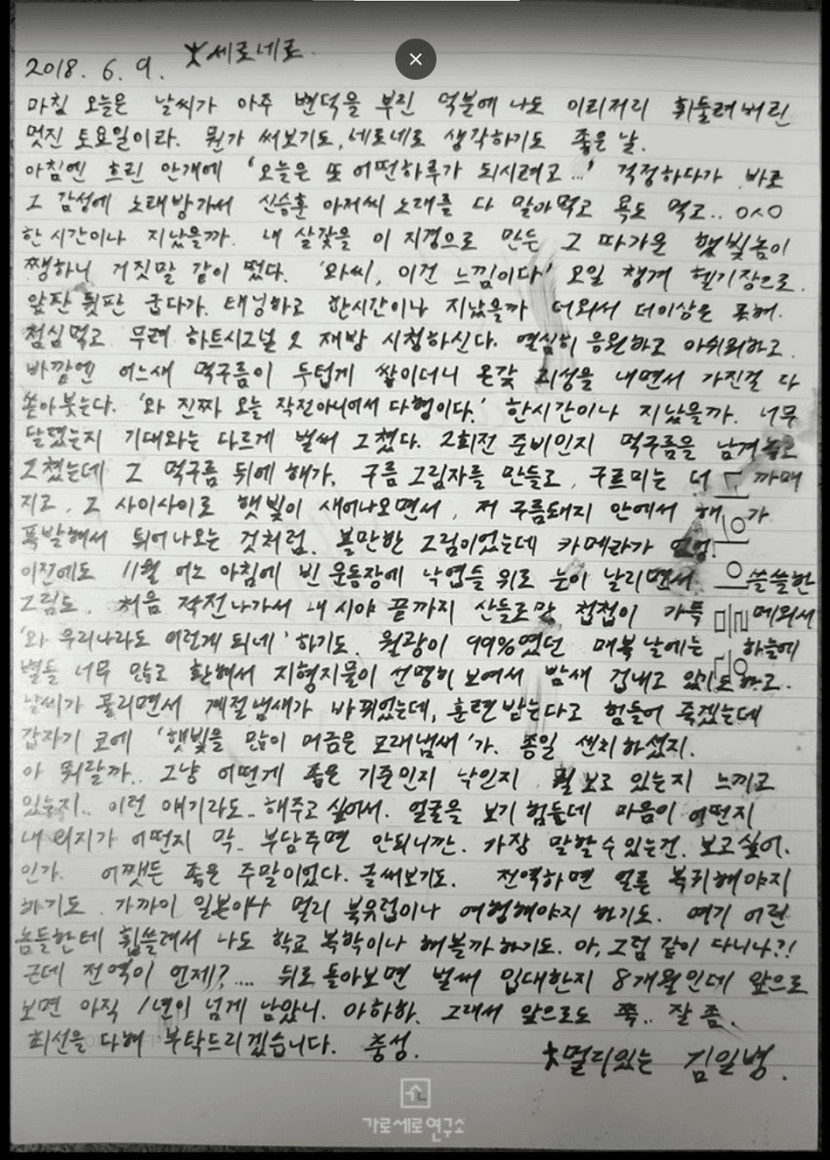 2018. 6. 9. 세로네로.
마침 오늘은 날씨가 아주 변덕을 부린 덕분에 나도 이리저리 휘둘려버린
멋진 토요일이라. 뭔가 써보기도, 세로네로 생각하기도 좋은 날.
아침엔 흐린 안개에 '오늘은 또 어떤하루가 되시려고...' 걱정하다가 바로
그 감성에 노래방가서 신승훈 아저씨 노래를 다 말아먹고 욕도 먹고.. ㅇㅅㅇ
한시간이나 지났을까. 내 살갗을 이 지경으로 만든 그 따가운 햇빛놈이
쨍하니 거짓말 같이 떴다. '와씨, 이건 느낌이다' 오일 챙겨 헬기장으로.
앞판 뒷판 굽다가. 태닝하고 한시간이나 지났을까 더워서 더이상은 못해.
점심먹고 무려 하트시그널 2 재방 시청하신다. 열심히 응원하고 아쉬워하고.
바깥엔 어느새 먹구름이 두텁게 쌓이더니 온갖 괴성을 내면서 가진걸 다
쏟아붓는다. '와 진짜 오늘 작전아니어서 다행이다.' 한시간이나 지났을까. 너무
달렸는지 기대와는 다르게 벌써 그쳤다. 2회전 준비인지 먹구름을 남겨놓고
그쳤는데 그 먹구름 뒤에 해가, 구름 그림자를 만들고, 구르미는 더 까매
지고, 그 사이사이로 햇빛이 새어나오면서, 저 구름돼지 안에서 해가
폭발해서 튀어나오는 것처럼. 볼만한 그림이었는데 카메라가
이전에도 11월 어느 아침에 빈 운동장에 낙엽들 위로 눈이 날리면서 쓸쓸한
그림도. 처음 작전나가서 내 시야 끝까지 산들로만 첩첩이 가득 메워서
'와 우리나라도 이렇게 되네' 하기도. 월광이 99%였던 매복날에는 하늘에
별들 너무 많고 환해서 지형지물이 선명히 보여서 밤새 겁내고 있기도하고.
날씨가 풀리면서 계절냄새가 바뀌었는데, 훈련받는다고 힘들어 죽겠는데
갑자기 코에 '햇빛을 많이 머금은 모래냄새'가. 종일 센치하셨지.
아 뭐랄까.. 그냥 어떤게 좋은 기준인지 낙인지 뭘보고 있는지 느끼고
있는지.. 이런 얘기라도.. 해주고 싶어서. 얼굴을 보기 힘든데 마음이 어떤지
내 의지가 어떤지 막.. 부담주면 안되니깐. 가장 말할수있는건. 보고싶어.
인가. 어쨋든 좋은 주말이었다. 글써보기도. 전역하면 얼른 복귀해야지
하기도. 가까이 일본이나 멀리 북유럽이나 여행해야지 하기도. 여기 어린
놈들한테 휩쓸려서 나도 학교 복학이나 해볼까하기도. 아, 그럼 같이 다니나?!
근데 전역이 언제?.... 뒤로 돌아보면 벌써 입대한지 8개월인데 앞으로
보면 아직 1년이 넘게 남았니. 아하하. 그래서 앞으로도 쭉.. 잘 좀.
최선을 다해 부탁드리겠습니다. 충성.
멀리있는 김일병.
가로세로연구소